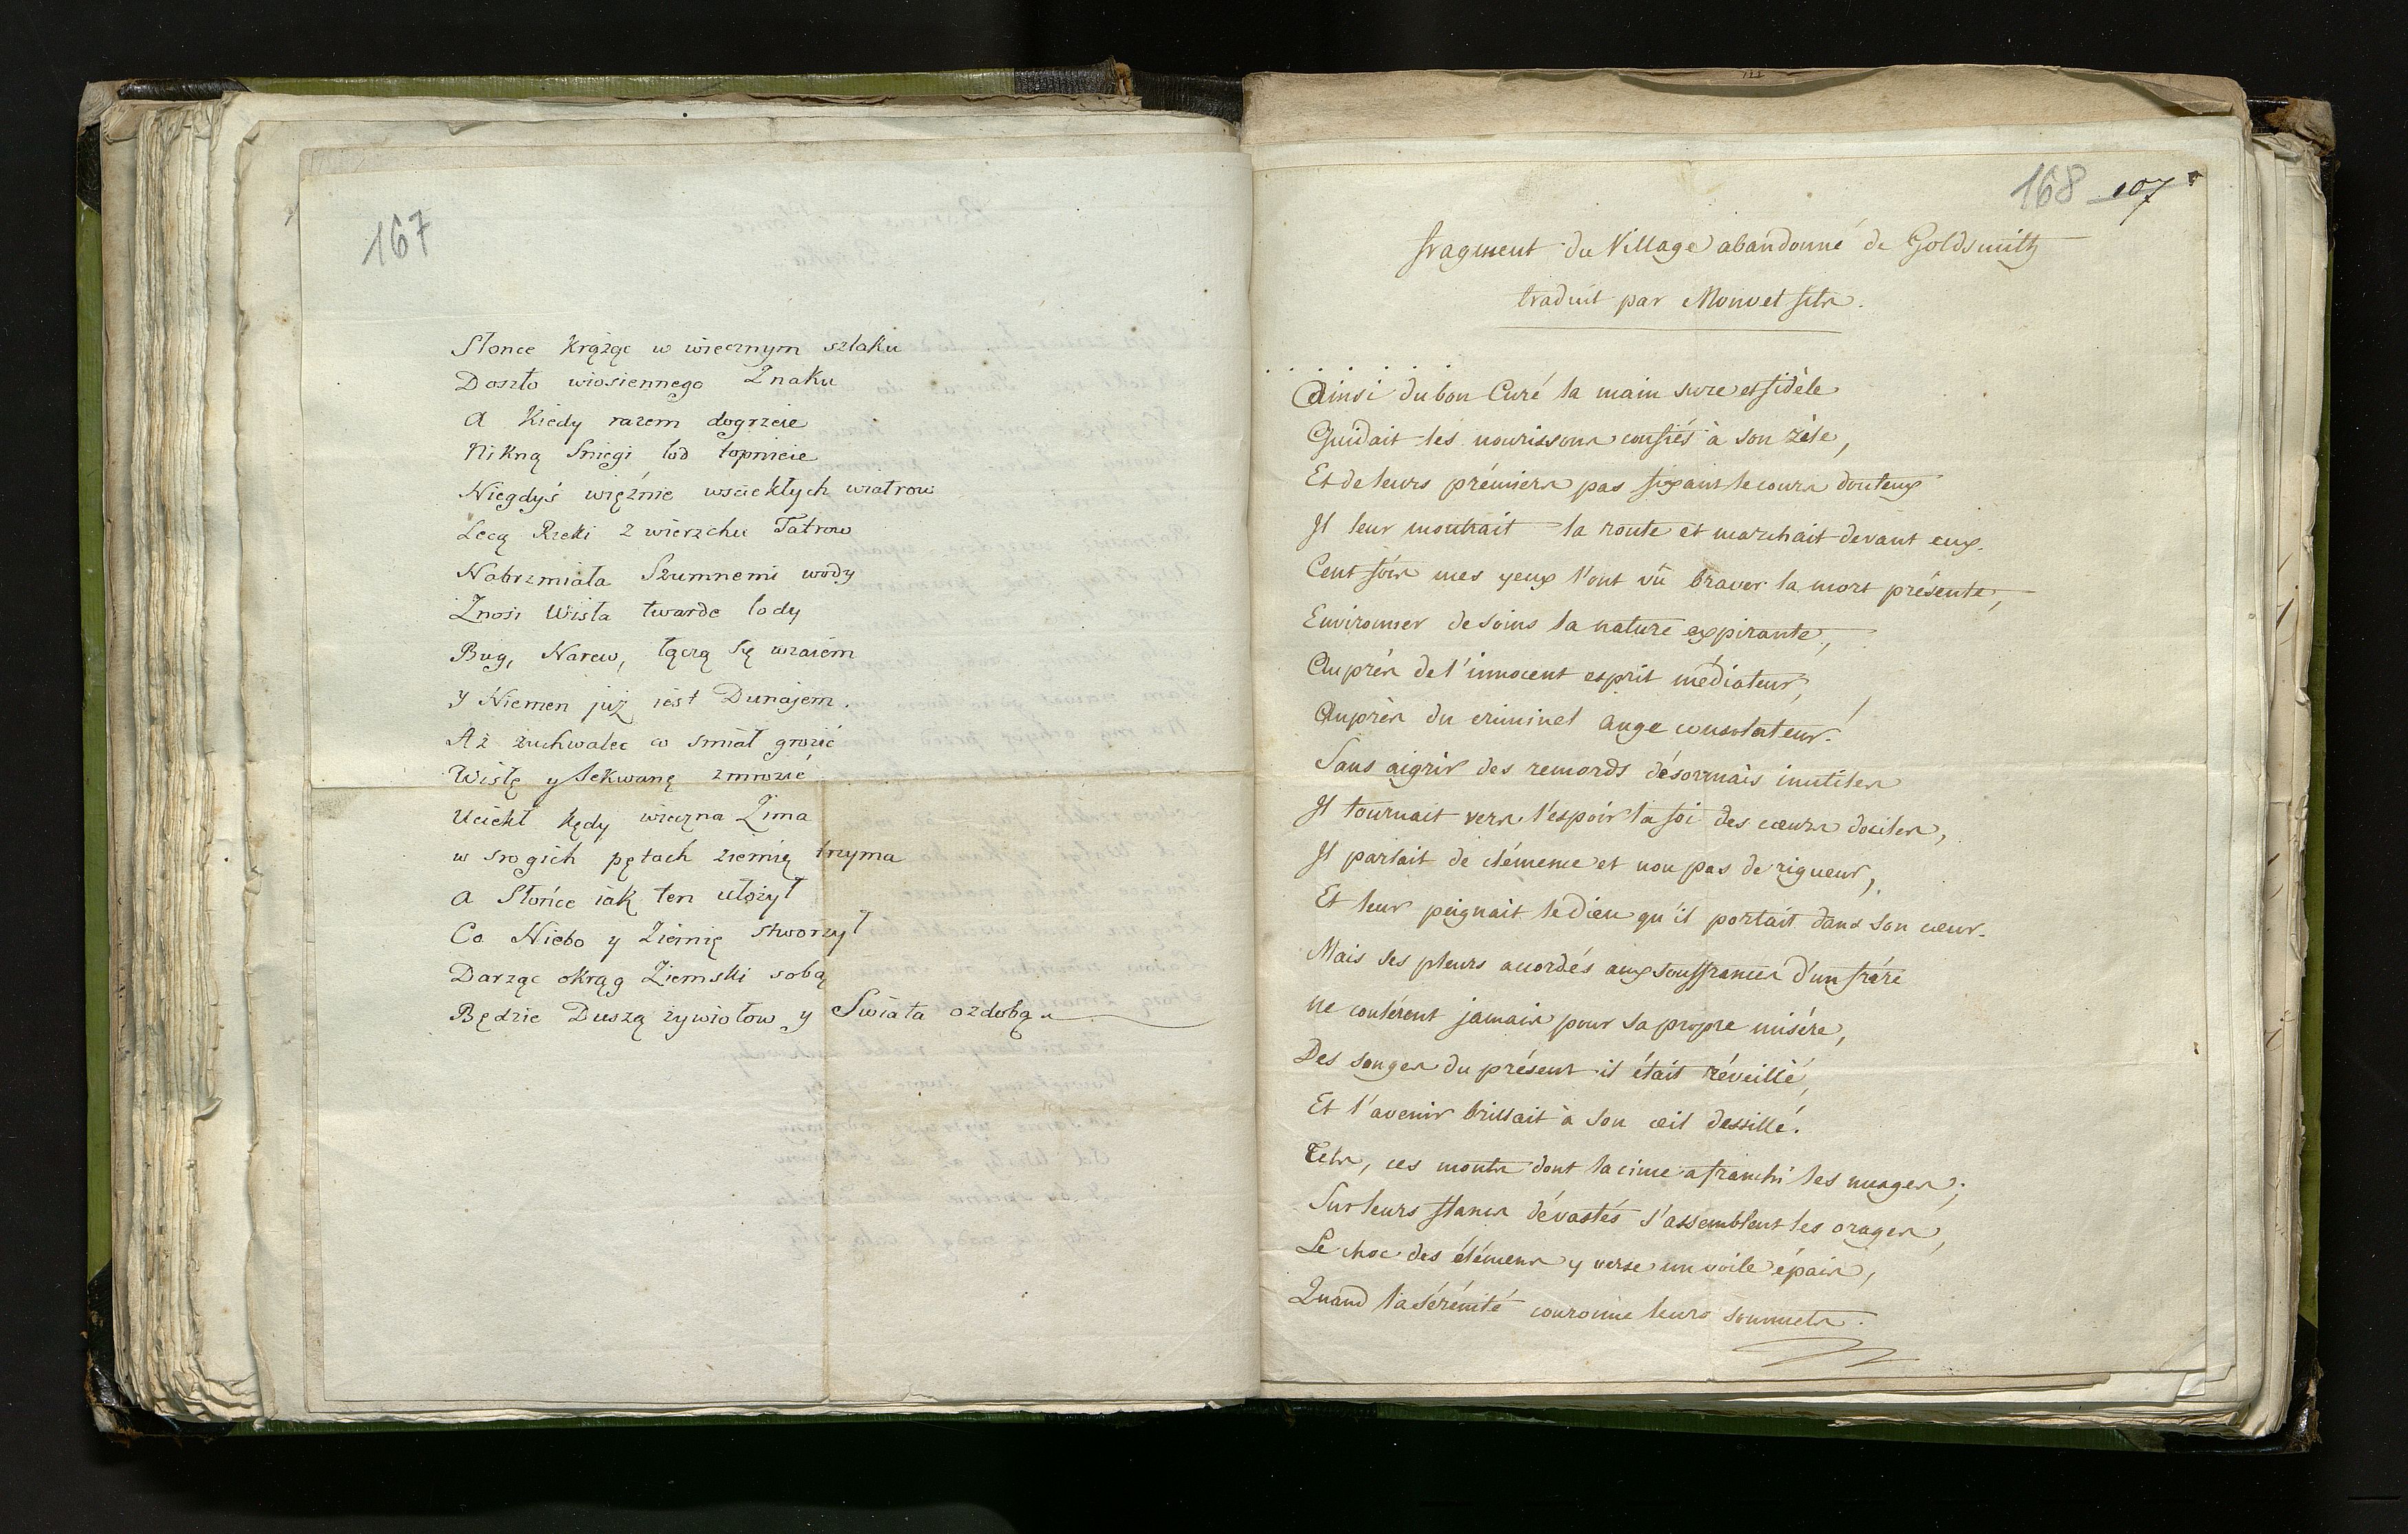 167
Słonce Krążąc w wiecznym szlaku
Doszło wiosiennego Znaku
A Kiedy razem dogrzeie
Nikną Sniegi lód topnieie
Niegdyś więźnie wsciekłych wiatrow
Lecą Rzeki z wierzchu Tatrow
Nabrzmiała Szumnemi wody
Znosi Wisła twarde lody
Bug, Narew, łączą Się wzaiem
y Niemen już iest Dunajem.
Aż zuchwalec co smiał grozić
Wisłę y Sekwanę zmrozić
Uciekł kędy wieczna Zima
w srogich pętach ziemię trzyma
A Słońce iak ten ułożył
Co Niebo y Ziemię stworzył
Darząc okrąg Ziemski sobą
Będzie Duszą żywiołow y Swiata ozdobą
168 107
fragment du Village abandonné de Goldsmith
traduit par Monvel fils.
. . . . . . .
Ainsi du bon Curé la main sure et fidèle
Guidait les nourissons confiés à son zèle,
Et de leurs prémiers pas fixant le cours douteux
Il leur montrait la route et marchait devant eux.
Cent fois mes yeux l'ont vû braver la mort présente,
Environner de soins la nature expirante,
Auprès de l'innocent esprit médiateur,
Auprès du criminel ange consolateur!
Sans aigrir des remords désormais inutiles
Il tournait vers l'espoir la foi des cœurs dociles,
Il parlait de clémence et non pas de rigueur,
Et leur peignait le Dieu qu'il portait dans son cœur.
Mais ses pleurs accordés aux souffrances d'un frère
ne coulèrent jamais pour sa propre misère,
Des songes du présent il était réveillé,
Et l'avenir brillait à son œil dessillé.
Tels, ces monts dont la cime a franchi les nuages;
Sur leurs flancs dévastés s'assemblent les orages,
Le choc des élémens y verse un voile épais,
Quand la sérénité couronne leurs sommets.